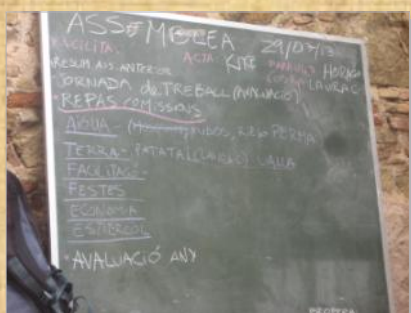 ASSEMBLEA 29/07/13
FACILITA: ACTA: KITE PARAULES: HORACI
RESUM ASS ANTERIOR LAURA G
· JORNADA de TREBALL (AVALUACIÓ)
· REPÀS COMISSIONS
AIGUA - BIDOS, REGO PERMA
TERRA - PATATA VALLA
FACILITACIÓ -
FESTES
ECONOMIA
ESTIERCOL
· AVALUACIÓ ANY
PROPERA